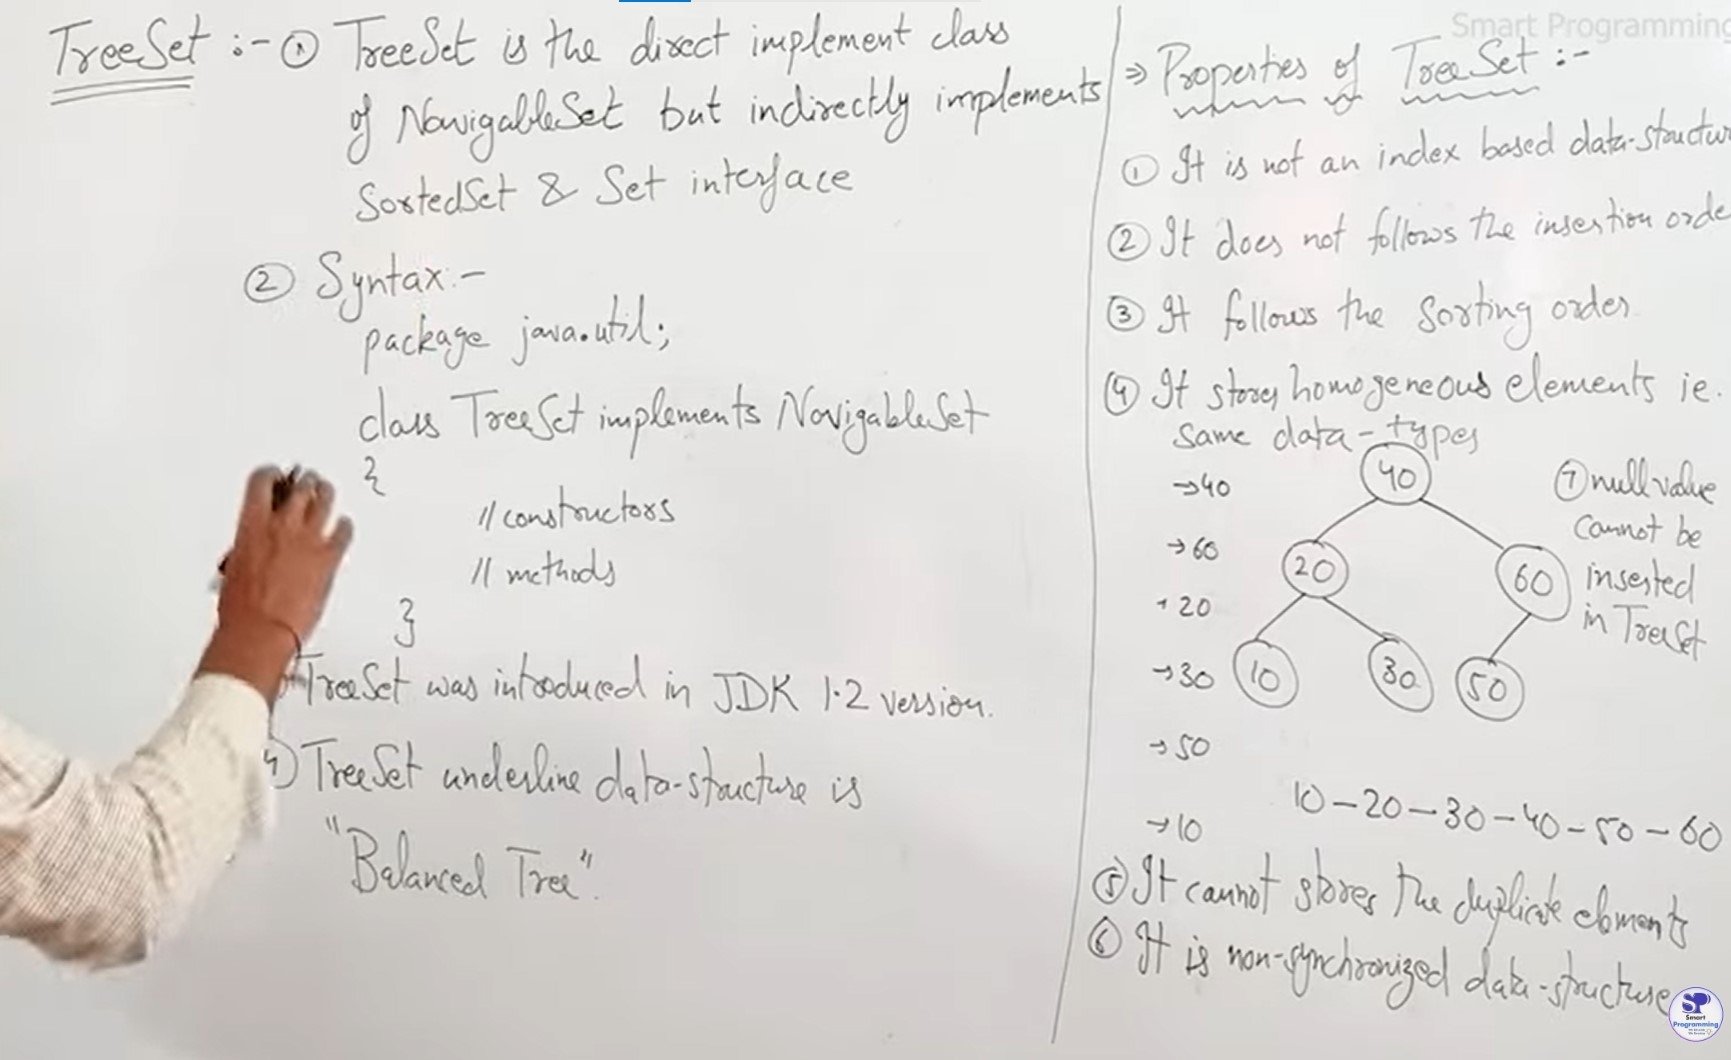 TreeSet :- ① TreeSet is the direct implement class
of NavigableSet but indirectly implements
SortedSet & Set interface
② Syntax:-
package java.util;
class TreeSet implements NavigableSet
{
// constructors
// methods
}
TreeSet was introduced in JDK 1.2 version.
4) TreeSet underline data-structure is
"Balanced Tree".
Smart Programming
⇒ Properties of TreeSet :-
① It is not an index based data-structur
② It does not follows the insertion orde
③ It follows the Sorting order
④ It stores homogeneous elements ie.
same data-types
→40
→60
→20
→30
→50
→10
40
20
60
10
30
50
⑦ null value
cannot be
inserted
in TreeSet
10-20-30-40-50-60
⑤ It cannot stores the duplicate elements
⑥ It is non-synchronized data-structure
SP
Smart
Programming